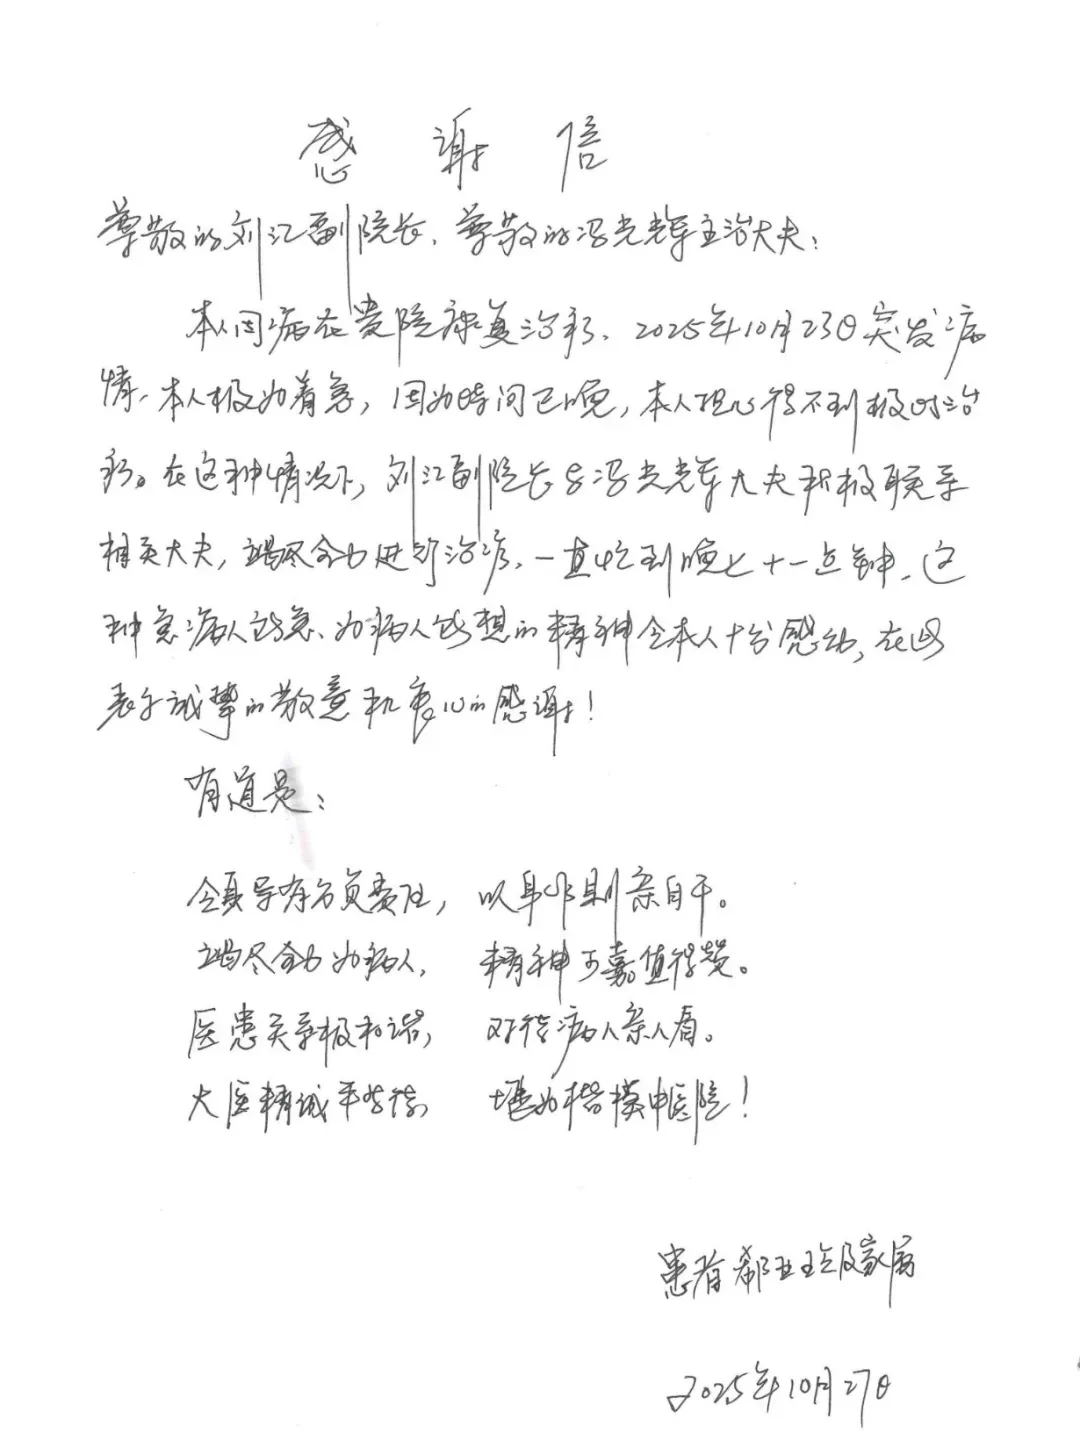 感谢信
尊敬的刘江副院长、尊敬的冯光辉主治大夫:
本人因病在贵院康复治疗、2025年10月23日突发病
情、本人极为着急,因为时间已晚,本人担心得不到及时治
疗。在这种情况下,刘江副院长与冯光辉大夫积极联系
相关大夫,竭尽全力进行治疗、一直忙到晚上十一点钟、这
种急病人所急、为病人所想的精神令本人十分感动,在此
表示诚挚的敬意和衷心的感谢!
有道是:
领导有方负责任,以身作则亲自干。
竭尽全力为病人,精神可嘉值得赞。
医患关系极和谐,对待病人亲人看。
大医精诚平等待,堪为楷模中医院!
患者及家属
2025年10月27日